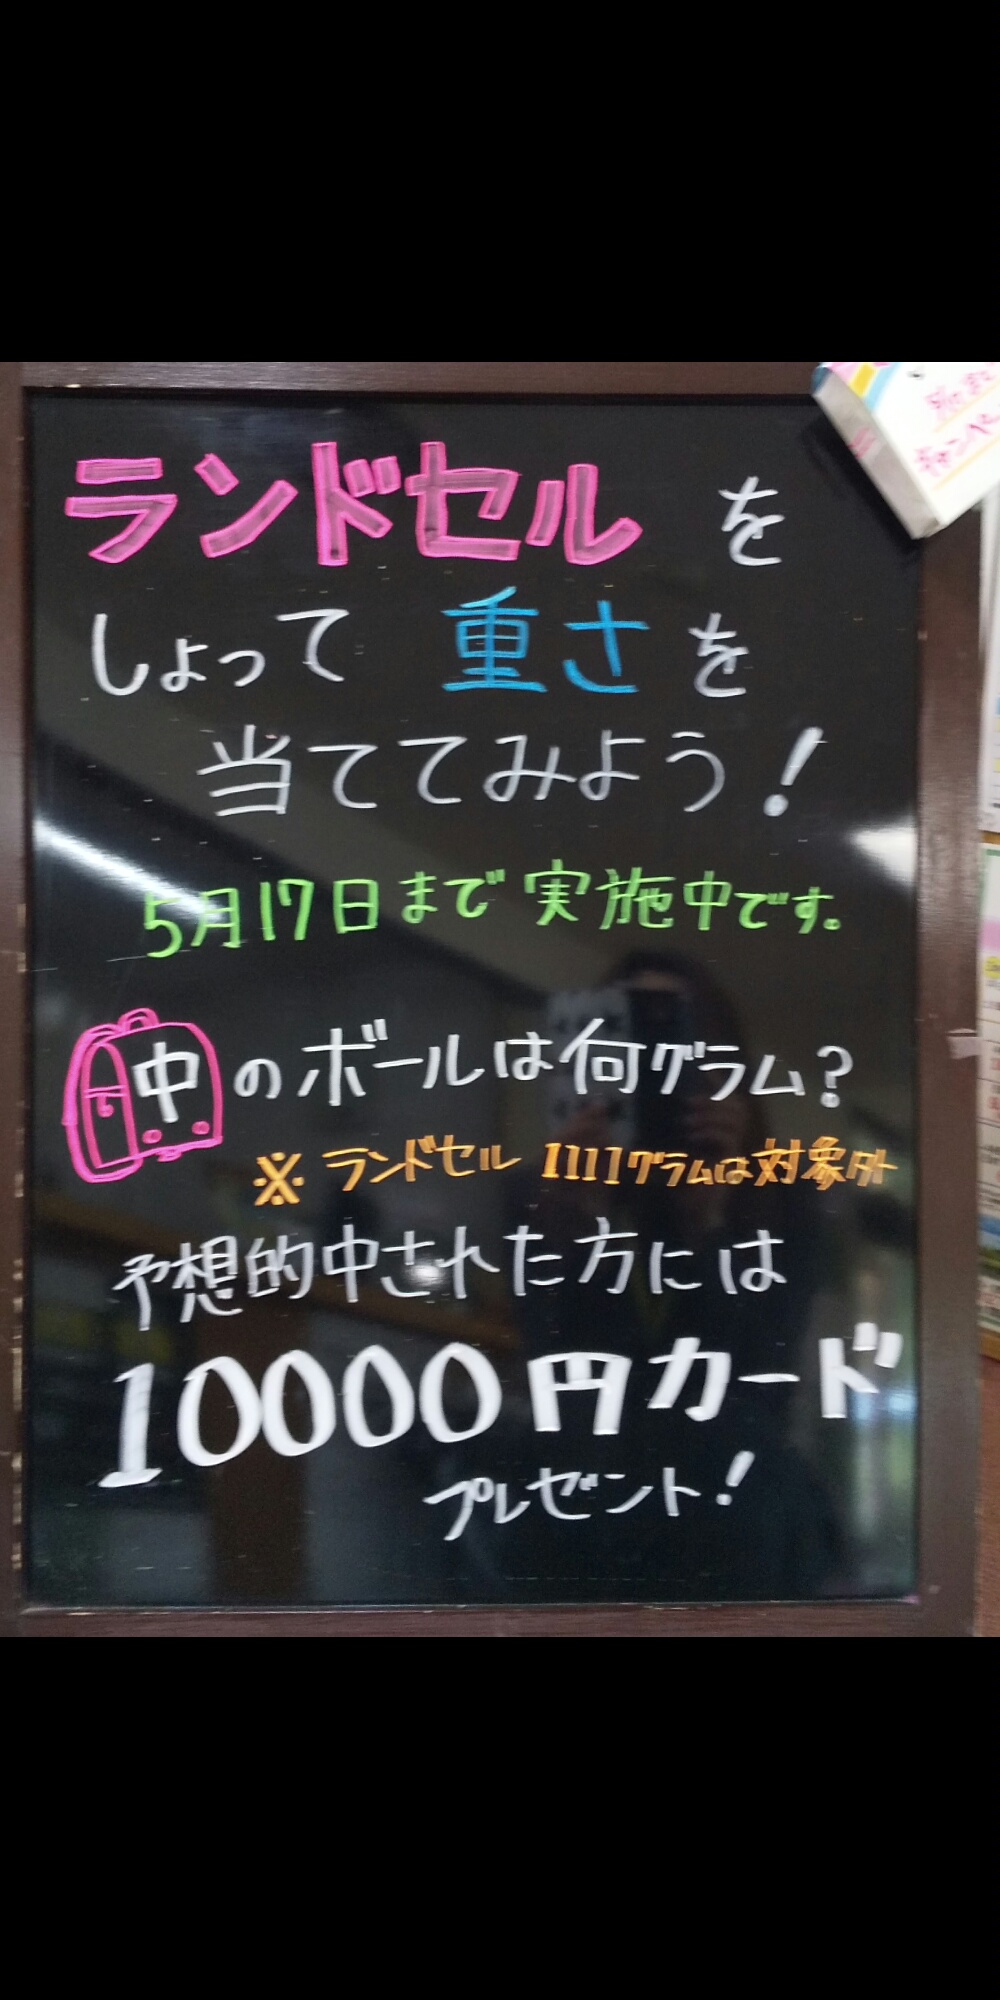 ランドセルを
しょって重さを
当ててみよう!
5月17日まで実施中です。
中のボールは何グラム?
※ランドセル1111グラムは対象外
予想的中された方には
10000円カード
プレゼント!